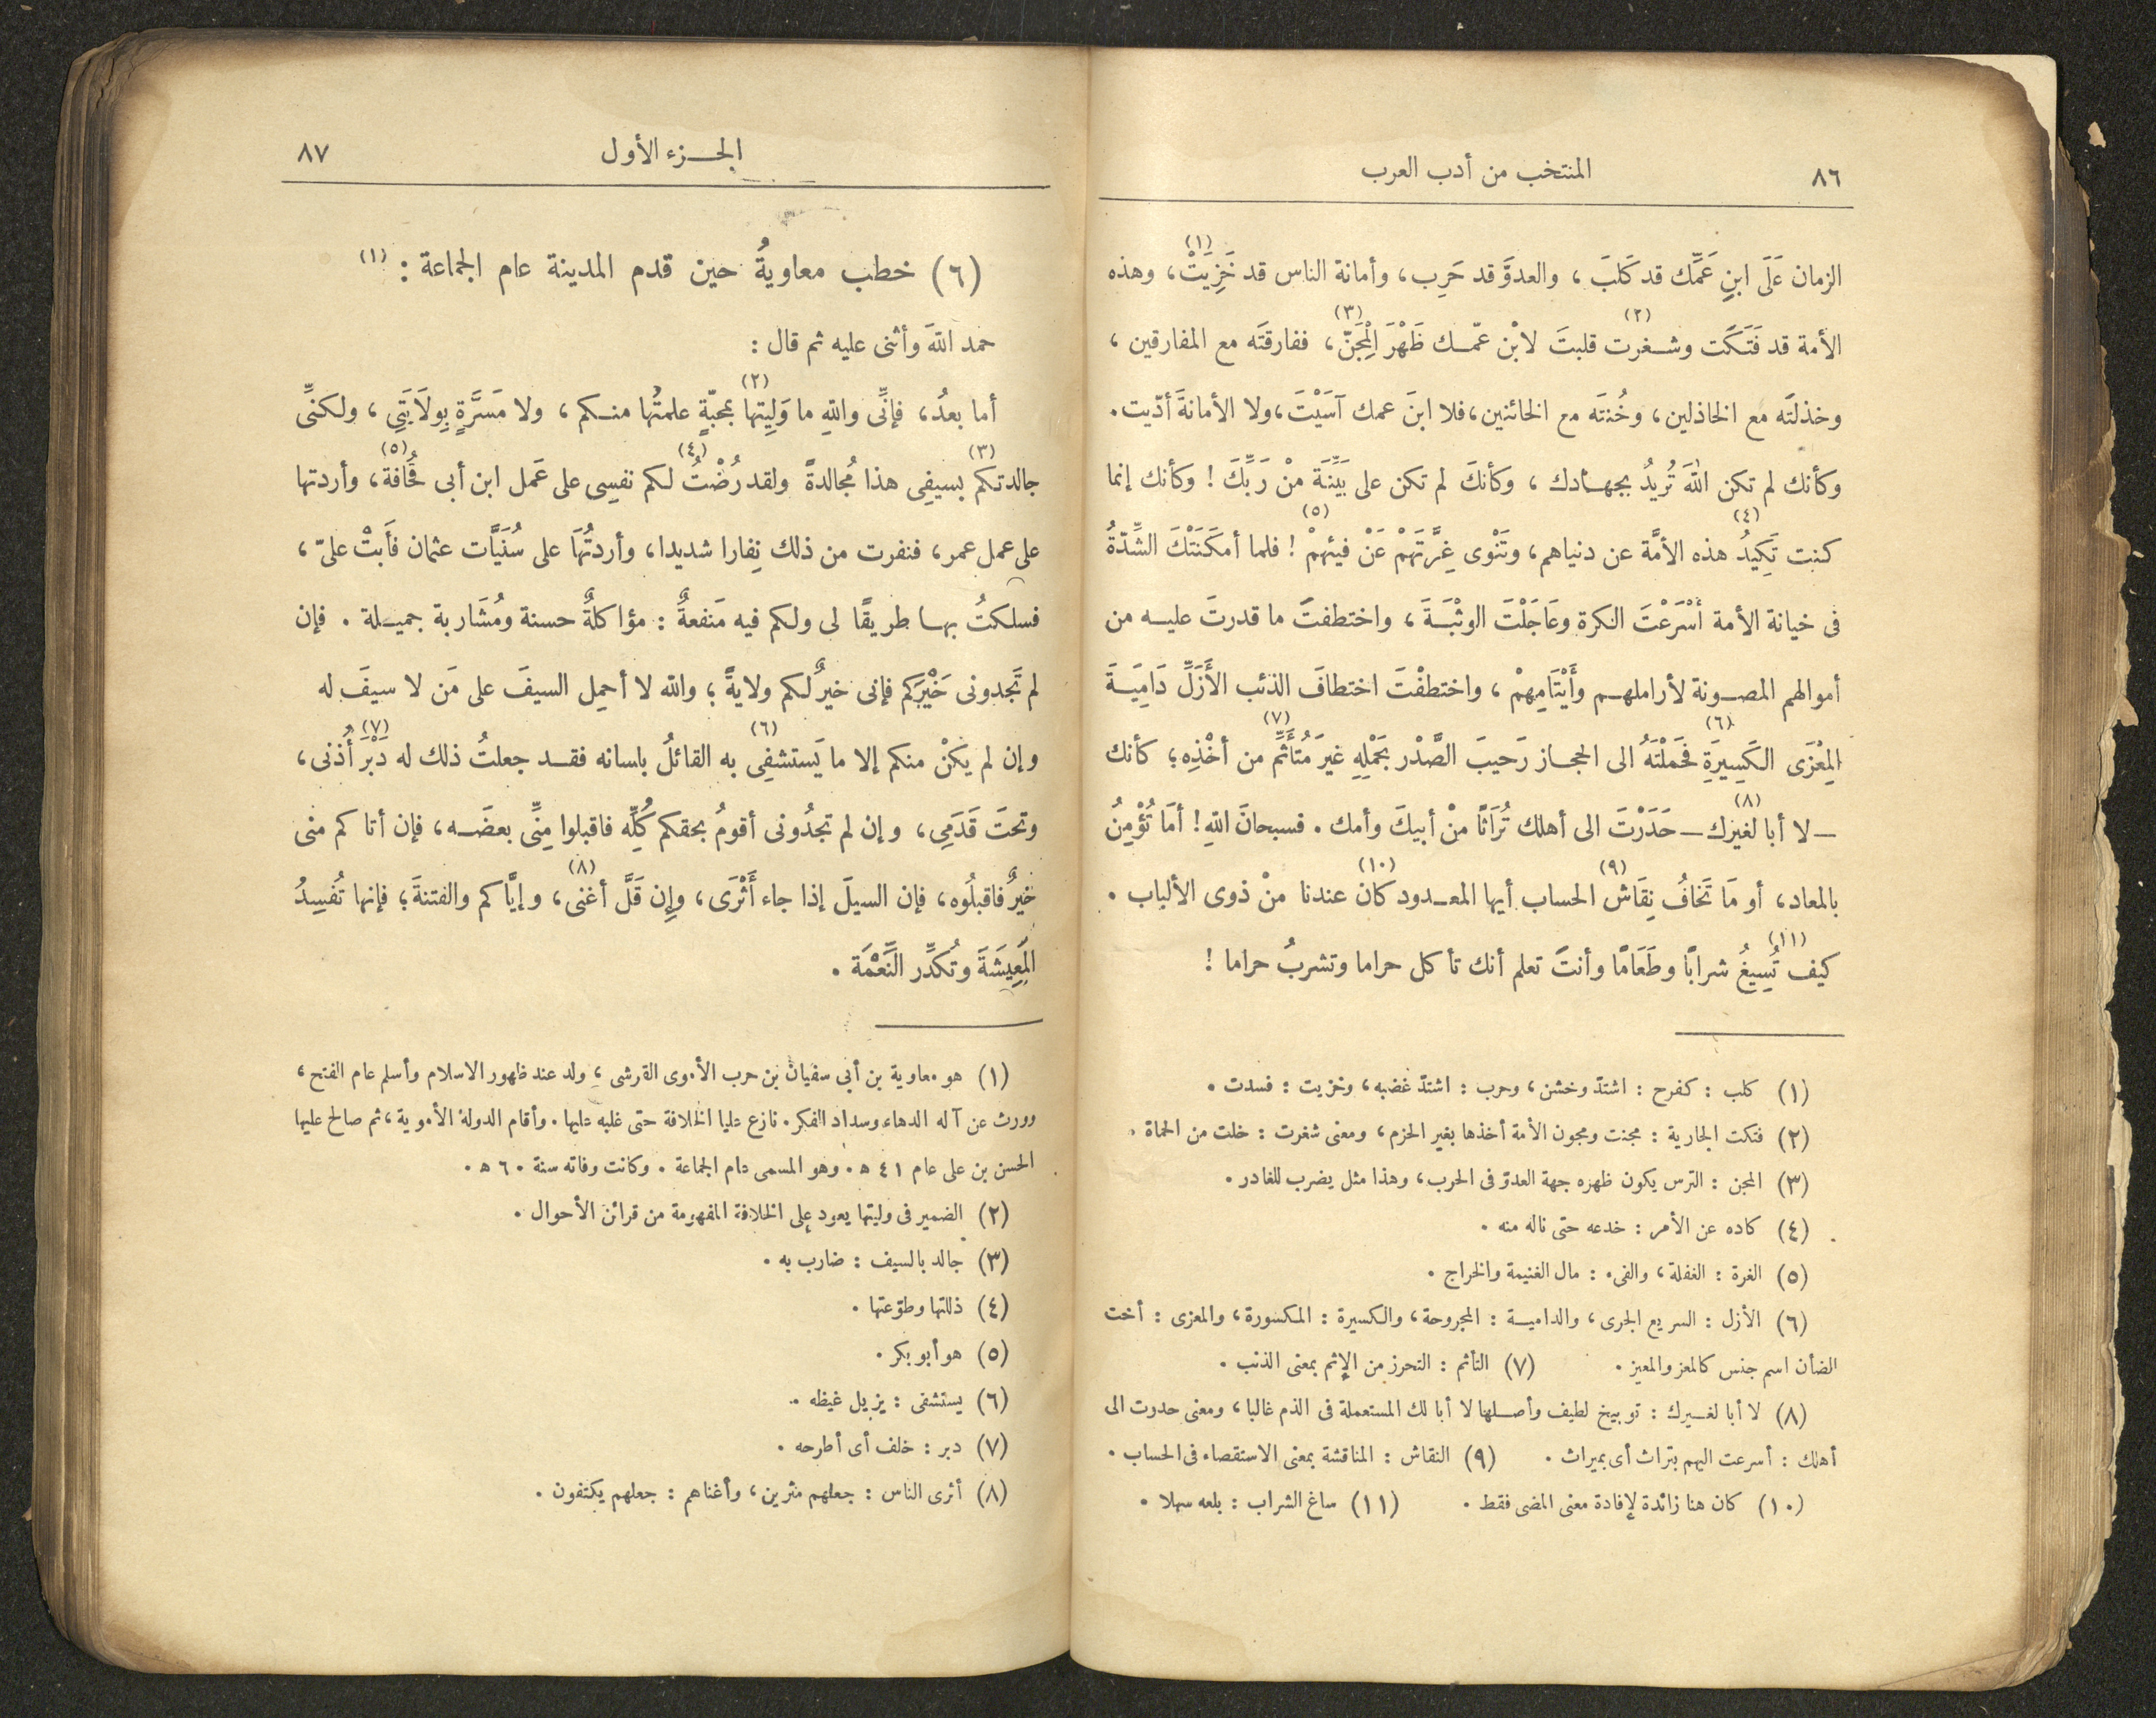 ٨٦
المنتخب من أدب العرب
الزمان عَلَى ابنِ عَمِّك قد كَلبَ ، والعدوَّ قد حَرِب ، وأمانة الناس قد خَزِيَتْ (١) ، وهذه
الأمة قد فَتَكَت وشغرت (٢) قلبتَ لابْن عمّك ظَهْرَ الْمِجَنّ (٣) ، ففارقتَه مع المفارقين ،
وخذلتَه مع الخاذلين ، وخُنتَه مع الخائنين ، فلا ابنَ عمك آسَيْتَ ، ولا الأمانةَ أدّيت .
وكأنك لم تكن اللهَ تُريدُ بجهادك ، وكأنكَ لم تكن على بَيِّنَة مِنْ رَبِّكَ ! وكأنك إنما
كنت تَكِيدُ (٤) هذه الأمَّة عن دنياهم ، وتَنْوى غِرَّتَهمْ عَنْ فيئهمْ (٥) ! فلما أمكَنَتْكَ الشِّدّةُ
فى خيانة الأمة أسْرَعْتَ الكرة وعَاجَلْتَ الوثْبَةَ ، واختطفتَ ما قدرتَ عليه من
أموالهم المصونة لأراملهم وأَيْتَامِهمْ ، واختطفْتَ اختطافَ الذئب الأَزَلِّ دَامِيَةَ
المِعْزَى الكَسِيرَةِ (٦) فحَمَلْتَهُ الى الحجاز رَحيبَ الصَّدْر بحَمْلِهِ غيرَ مُتَأَثِّمٍ (٧) من أخْذِه ؛ كأنك
— لا أبا لغيرك (٨) — حَدَرْتَ الى أهلك تُرَاثًا مِنْ أبيكَ وأمك . فسبحانَ اللهِ ! أمَا تُؤْمِنُ
بالمعاد ، أو مَا تَخافُ نِقَاشَ (٩) الحساب أيها المعدود كان (١٠) عندنا مِنْ ذوى الألباب .
كيف تُسِيغُ (١١) شرابًا وطَعَامًا وأنتَ تعلم أنك تأكل حراما وتشربُ حراما !
(١) كلب : كفرح : اشتدّ وخشن ، وحرب : اشتدّ غضبه ، وخزيت : فسدت .
(٢) فتكت الجارية : مجنت ومجون الأمة أخذها بغير الحزم ، ومعنى شغرت : خلت من الحماة .
(٣) المجن : الترس يكون ظهره جهة العدوّ فى الحرب ، وهذا مثل يضرب للغادر .
(٤) كاده عن الأمر : خدعه حتى ناله منه .
(٥) الغرة : الغفلة ، والفىء : مال الغنيمة والخراج .
(٦) الأزل : السريع الجرى ، والدامية : المجروحة ، والكسيرة : المكسورة ، والمعزى : أخت
الضأن اسم جنس كالمعز والمعيز . (٧) التأثم : التحرز من الإثم بمعنى الذنب .
(٨) لا أبا لغيرك : توبيخ لطيف وأصلها لا أبا لك المستعملة فى الذم غالبا ، ومعنى حدرت الى
أهلك : أسرعت اليهم بتراث أى بميراث . (٩) النقاش : المناقشة بمعنى الاستقصاء فى الحساب .
(١٠) كان هنا زائدة لإفادة معنى المضى فقط . (١١) ساغ الشراب : بلعه سهلا .
الجزء الأول
٨٧
(٦) خطب معاويةُ حين قدم المدينة عام الجماعة : (١)
حمد اللهَ وأثنى عليه ثم قال :
أما بعدُ ، فإنِّى واللهِ ما وَلِيتها (٢) بمحبّةٍ علمتُها منكم ، ولا مَسرَّةٍ بِولَايَتِى ، ولكنِّى
جالدتكم (٣) بسيفِى هذا مُجالدةً ولقد رُضْتُ (٤) لكم نفسِى على عَمل ابن أبى قُحَافة (٥) ، وأردتها
على عمل عمر ، فنفرت من ذلك نِفارا شديدا ، وأردتُهَا على سُنَيَّات عثمان فأَبتْ علىّ ،
فسلكتُ بها طريقًا لى ولكم فيه مَنفعةٌ : مؤاكلةٌ حسنة ومُشَاربة جميلة . فإن
لم تَجدونى خَيْرَكم فإنى خيرٌ لكم ولايةً ؛ والله لا أحمِل السيفَ على مَن لا سيفَ له
وإن لم يكنْ منكم إلا ما يَستشفِى (٦) به القائلُ بلسانه فقد جعلتُ ذلك له دَبْرَ (٧) أُذنى ،
وتحتَ قَدَمِى ، وإن لم تجدُونى أقومُ بحقكم كُلِّه فاقبلوا مِنِّى بعضَه ، فإن أتاكم منى
خيرٌ فاقبلُوه ، فإن السيلَ إذا جاء أَثْرَى ، وإِن قَلَّ أغنى (٨) ، وإيَّاكم والفتنةَ ؛ فإنها تُفسِدُ
المَعِيشَةَ وتُكدِّر النِّعْمَة .
(١) هو معاوية بن أبى سفيان بن حرب الأموى القرشى ، ولد عند ظهور الاسلام وأسلم عام الفتح ،
وورث عن آله الدهاء وسداد الفكر . نازع عليا الخلافة حتى غلبه عليها . وأقام الدولة الأموية ، ثم صالح عليها
الحسن بن على عام ٤١ ه . وهو المسمى عام الجماعة . وكانت وفاته سنة ٦٠ ه .
(٢) الضمير فى وليتها يعود على الخلافة المفهومة من قرائن الأحوال .
(٣) جالد بالسيف : ضارب به .
(٤) ذللتها وطوّعتها .
(٥) هو أبو بكر .
(٦) يستشفى : يزيل غيظه .
(٧) دبر : خلف أى أطرحه .
(٨) أثرى الناس : جعلهم مثرين ، وأغناهم : جعلهم يكتفون .